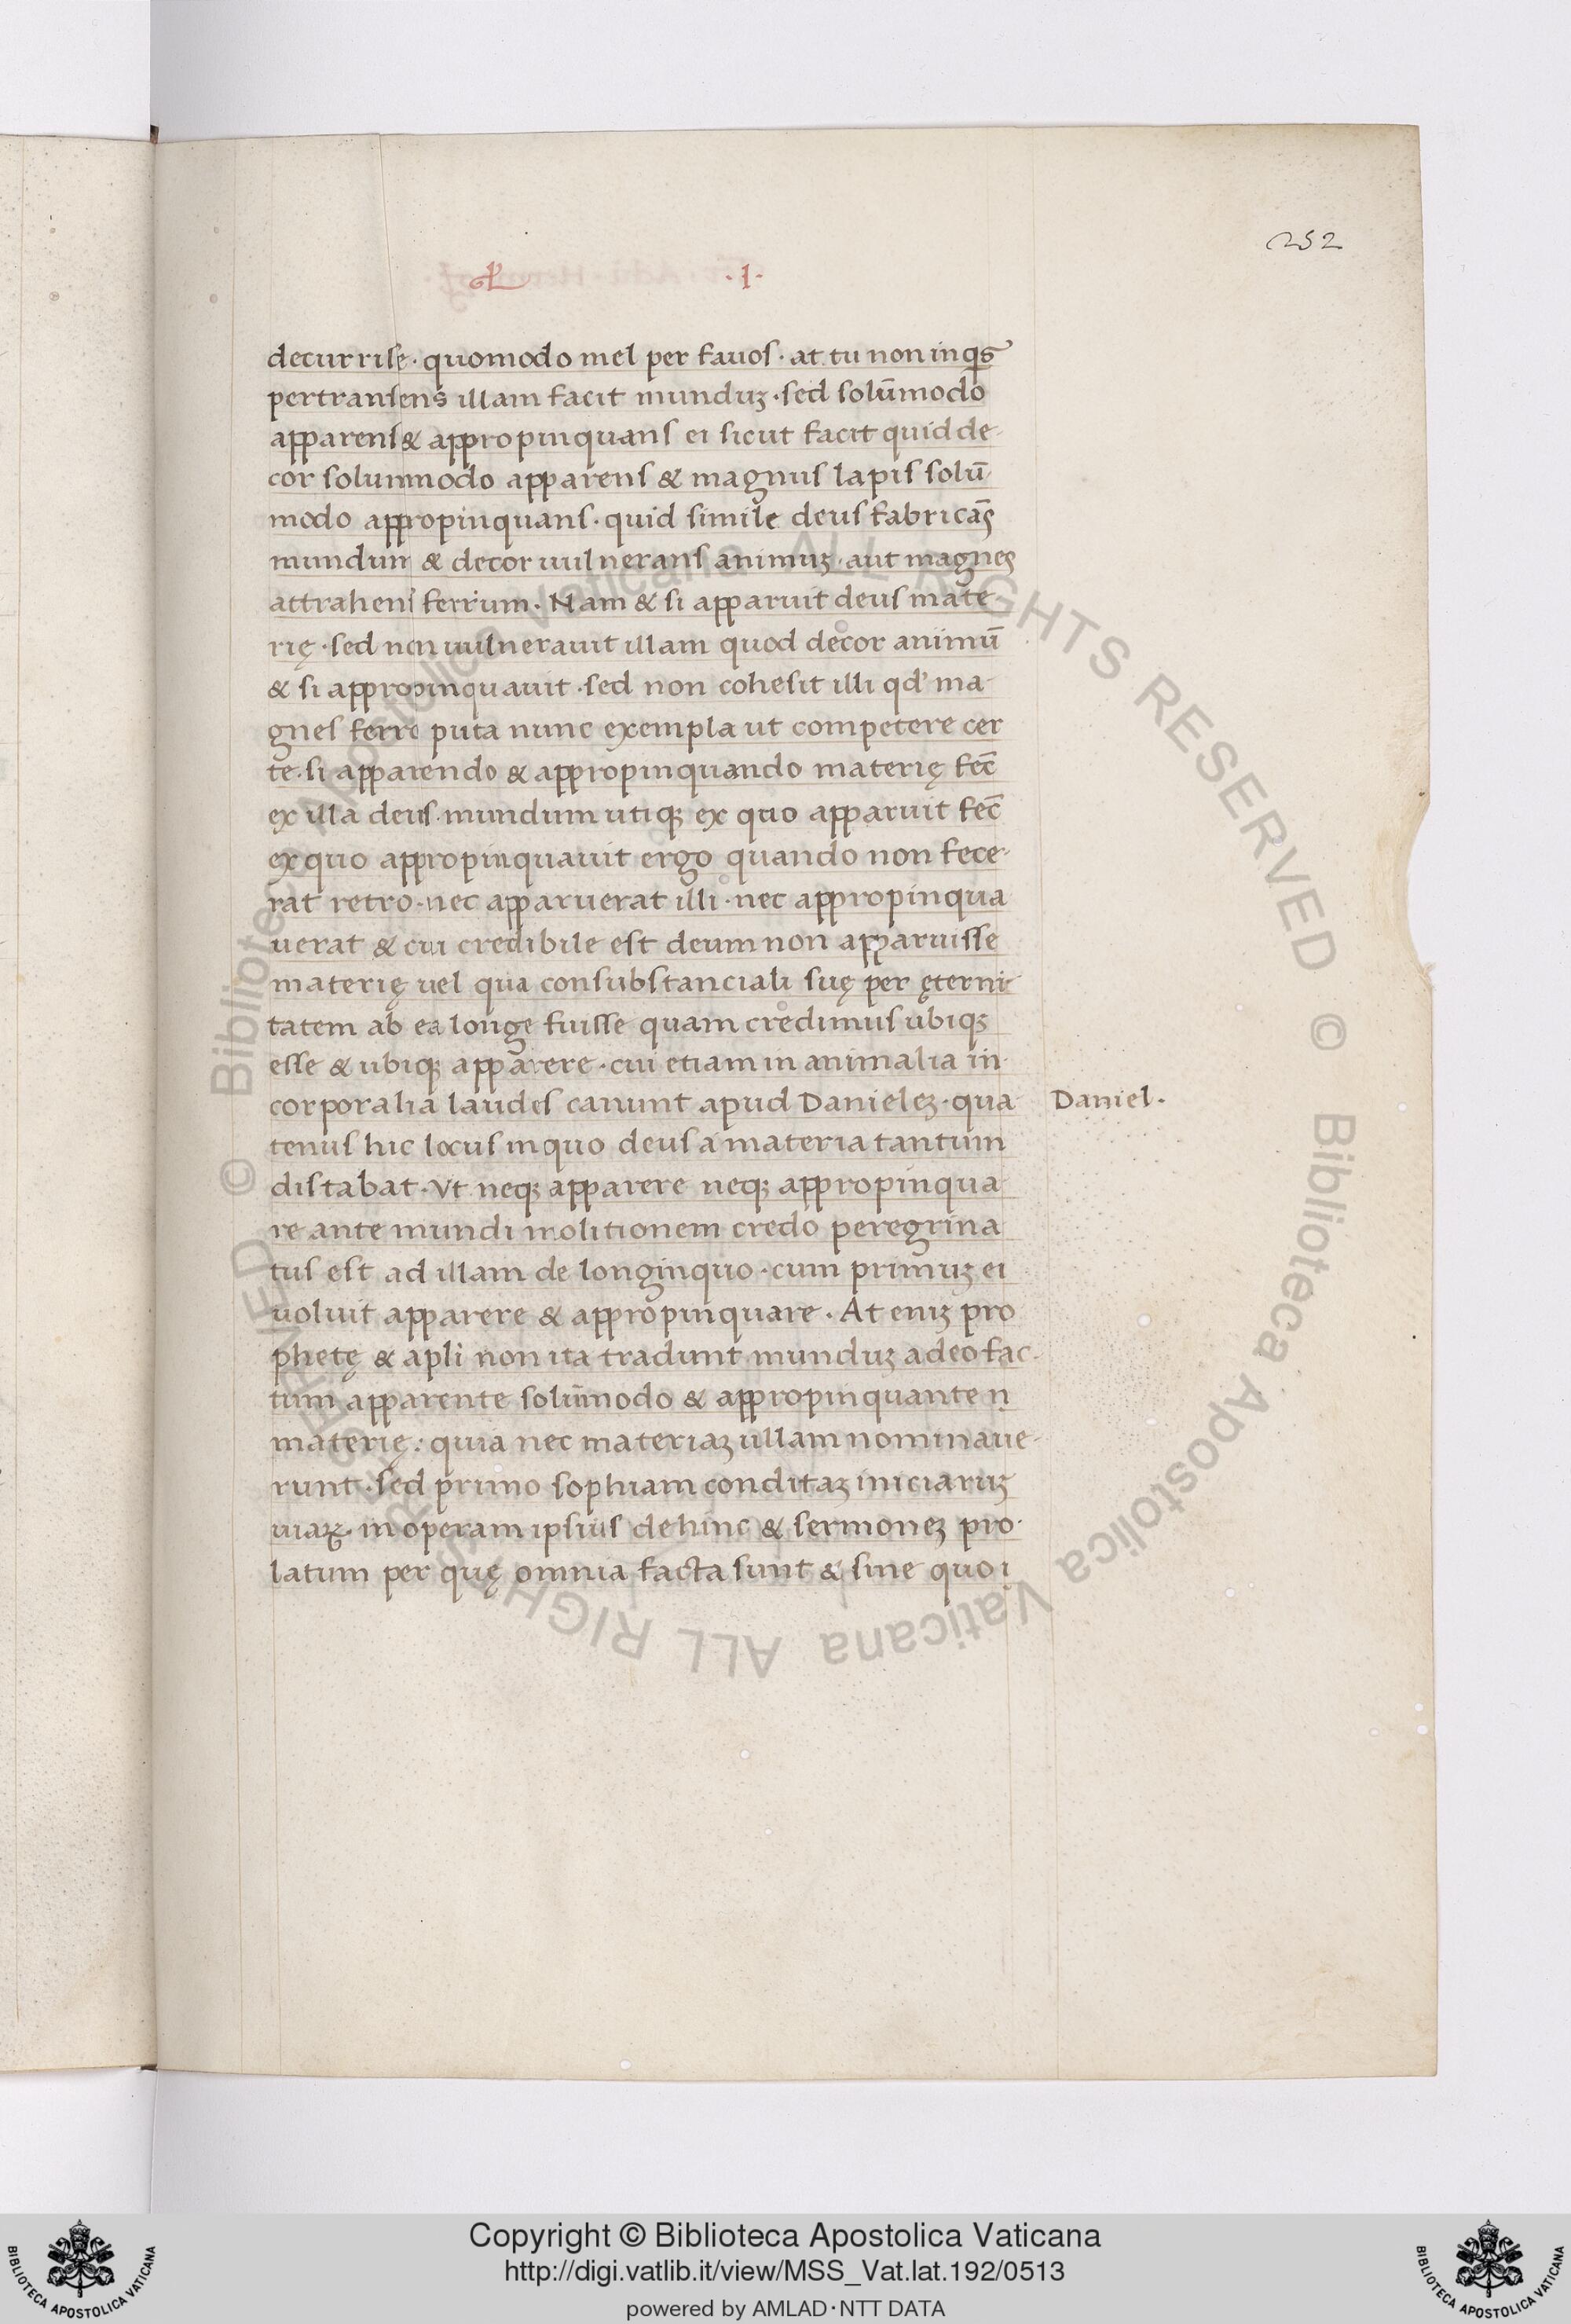 252
·I·
decurrise · quomodo mel per fauos · at tu non inq̇s
pertransens illam facit munduꝫ · sed solūmodo
apparens & appropinquans ei sicut facit quid de-
cor solummodo apparens & magnus lapis solū
modo appropinquans · quid simile deus fabricās
mundum & decor uulnerans animuꝫ · aut magnes
attrahens ferrum · Nam & si apparuit deus mate
rię · sed non uulnerauit illam quod decor animū
& si appropinquauit · sed non cohesit illi qd' ma-
gnes ferro puta nunc exempla ut competere cer
te · si apparendo & appropinquando materię fec̄
ex illa deus · mundum utiqꝫ ex quo apparuit fec̄
ex quo appropinquauit ergo quando non fece-
rat retro · nec apparuerat illi · nec appropinqua
uerat & cui credibile est deum non apparuisse
materię uel qua consubstanciali suę per ęterni-
tatem ab ea longe fuisse quam credimus ubiqꝫ
esse & ubiqꝫ apparere · cui etiam in animalia in-
corporalia laudes canunt apud Danieleꝫ · qua
tenus hic locus inquo deus a materia tantum
distabat · Vt neqꝫ apparere neqꝫ appropinqua
re ante mundi molitionem credo peregrina
tus est ad illam de longinquo · cum primuꝫ ei
uoluit apparere & appropinquare · At eniꝫ pro
phetę & apli non ita tradunt munduꝫ adeo fac-
tum apparente solūmodo & appropinquante n
materię : quia nec materiaꝫ ullam nominaue-
runt · sed primo sophiam conditaꝫ iniciaruꝫ
uiaꝝ · in operam ipsius dehinc & sermoneꝫ pro-
latum per quę omnia facta sunt & sine quo i
Daniel ·
© Biblioteca Apostolica Vaticana ALL RIGHTS RESERVED © Biblioteca Apostolica Vaticana ALL RIGHTS RESERVED
Copyright © Biblioteca Apostolica Vaticana
http://digi.vatlib.it/view/MSS_Vat.lat.192/0513
powered by AMLAD·NTT DATA
BIBLIOTECA APOSTOLICA VATICANA
BIBLIOTECA APOSTOLICA VATICANA